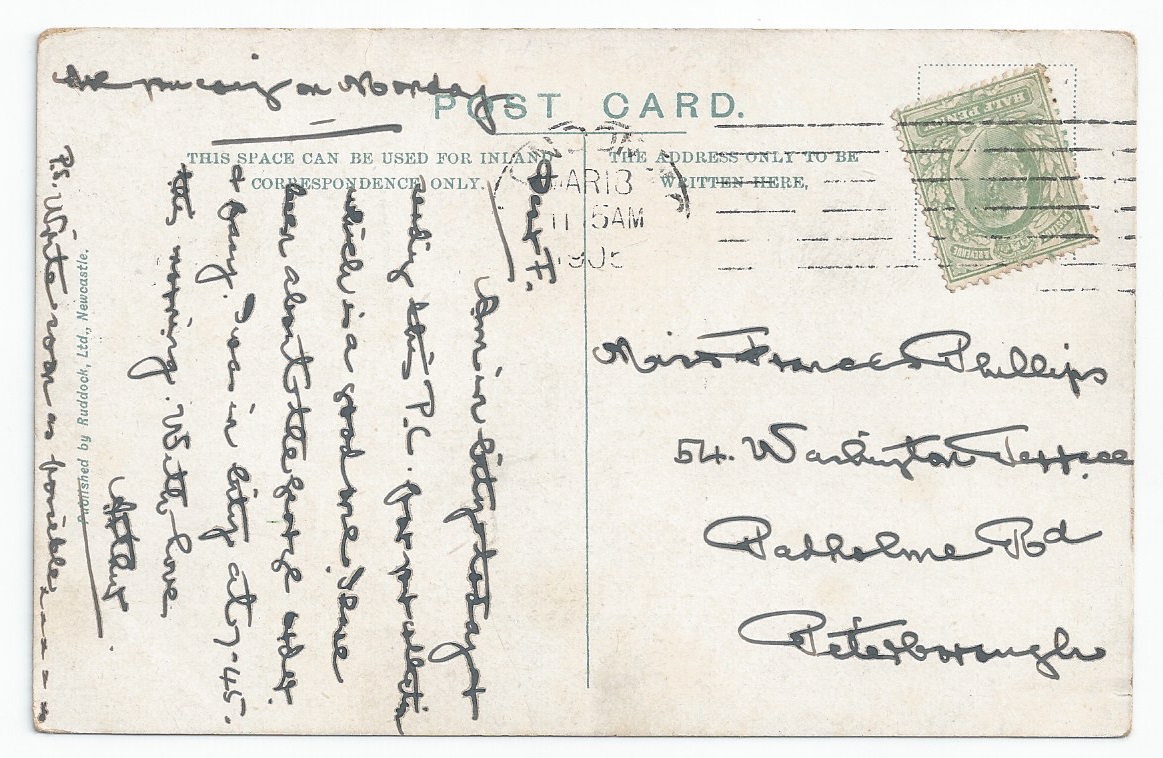 POST CARD.
THIS SPACE CAN BE USED FOR INLAND
CORRESPONDENCE ONLY.
THE ADDRESS ONLY TO BE
WRITTEN HERE,
HALF PENNY
MAR 13
11 5AM
190
Miss Frances Phillips
54. Washington Terrace
Padholme Rd
Peterborough
Dear F.
Am in City today &
send this P.C. for
which is a good one. I have
been about the
& Fancy. I was in City at 7-45.
this morning. With love
Arthur
P.S. Write soon as possible
on Monday
Published by Ruddock, Ltd., Newcastle.